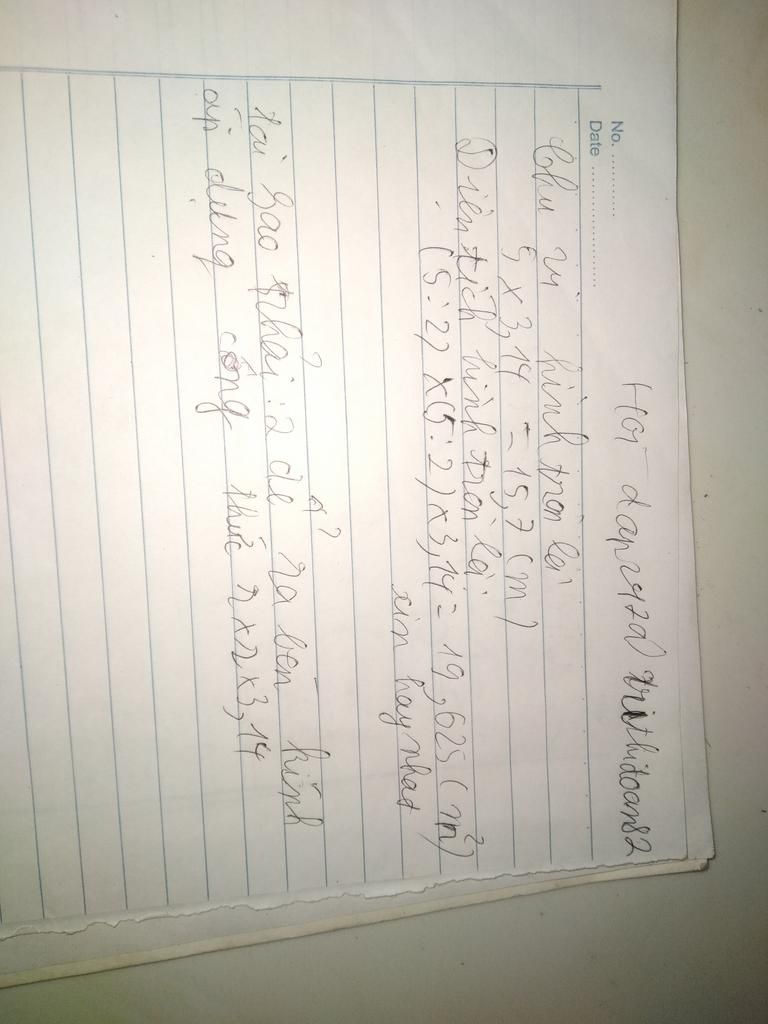 Hoi dapzyzd trithitoan82
No. ..........
Date ....................
Chu vi hình tròn là
5 x 3,14 = 15,7 (m)
Diện tích hình tròn là
(5:2) x (5:2) x 3,14 = 19,625 (m²)
xin hay nhat
tại sao phải :2 để ra bán kính
áp dụng công thức r x r x 3,14